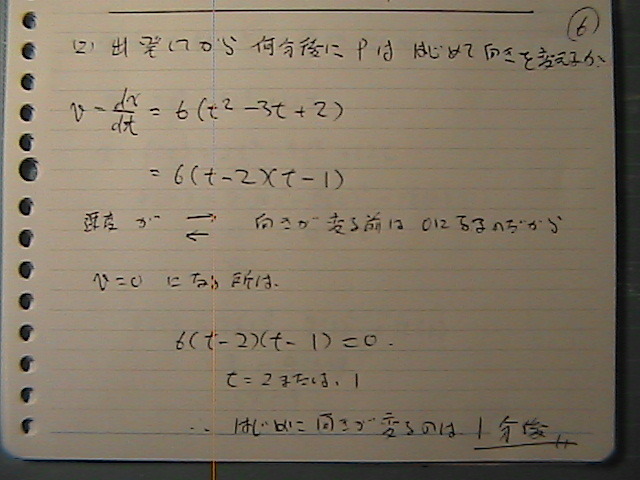 ⑥
(2) 出発してから 何分後に Pは はじめて 向きを変えるか。
v = dx/dt = 6(t² - 3t + 2)
= 6(t - 2)(t - 1)
速度 が → ← 向きが 変る前は 0になるのだから
v = 0 になる 所は、
6(t - 2)(t - 1) = 0.
t = 2 または、1
∴ はじめに 向きが 変るのは 1 分後